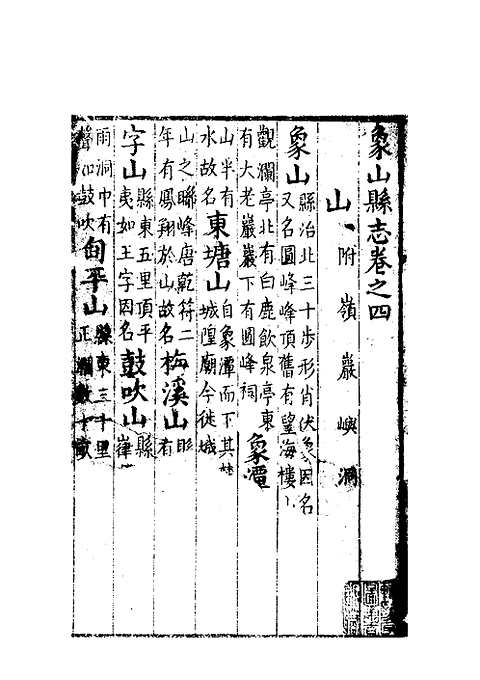 象山縣志卷之四
山 附嶺巖嶼洞
象山 縣治北三十步形肖伏象因名
又名圓峰峰頂舊有望海樓
觀瀾亭北有白鹿飲泉亭東
有大老巖巖下有圓峰祠 象潭
山 半有
水故名 東塘山 自象潭而下其
城隍廟今徙城
山之聯峰唐乾符二
年有鳳翔於山故名 梅溪山 縣
有
字山 縣東五里頂平
夷如王字因名 鼓吹山 縣
雨洞中有
聲如鼓吹 旬平山 縣東三十里
正